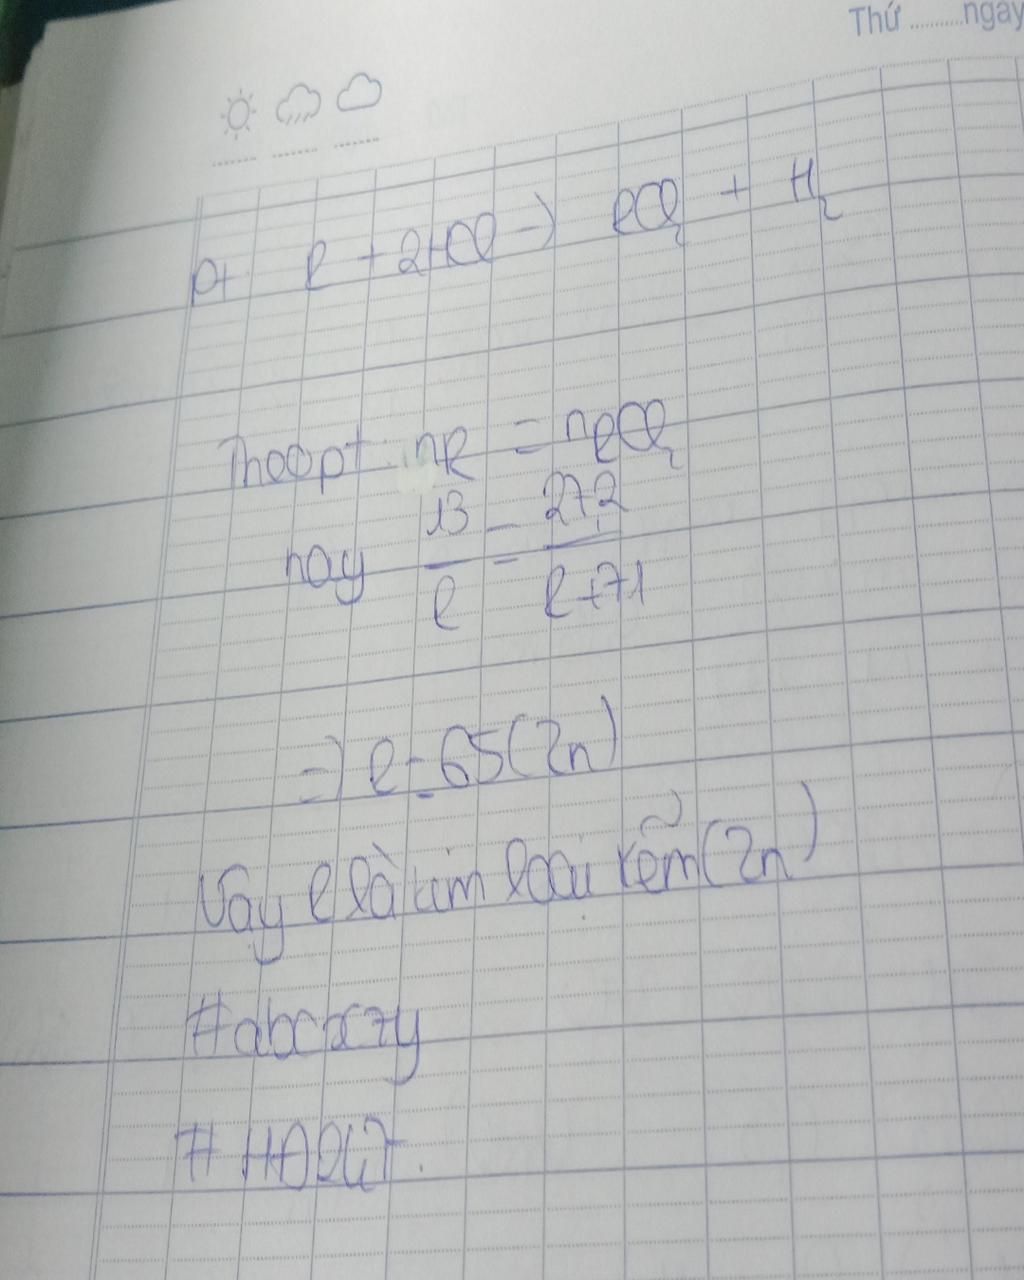 Thứ ..........ngày
Pt R + 2HCl → RCl₂ + H₂
Theo pt: nR = nRCl₂
hay 13/R = 27,2/R+71
=> R = 65 (Zn)
Vậy R là kim loại kẽm (Zn)
#abcxzy